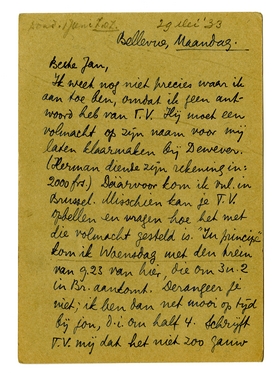 29 Mei '33
Bellevue, Maandag.
Beste Jan,
Ik weet nog niet precies waar ik
aan toe ben, omdat ik geen ant-
woord heb van T.V. Hij moet een
volmacht op zijn naam voor mij
laten klaarmaken bij Dewever.
(Herman diende zijn rekening in:
2000 frs.) Daarvoor kom ik vnl. in
Brussel. Misschien kan je T.V.
opbellen en vragen hoe het met
die volmacht gesteld is. "In principe"
kom ik Woensdag met den trein
van 9.23 van hier, die om 3 u. 2
in Br. aankomt. Derangeer je
niet; ik ben dan net mooi op tijd
bij jou, d.i. om half 4. Schrijft
T.V. mij dat het niet zoo gauw